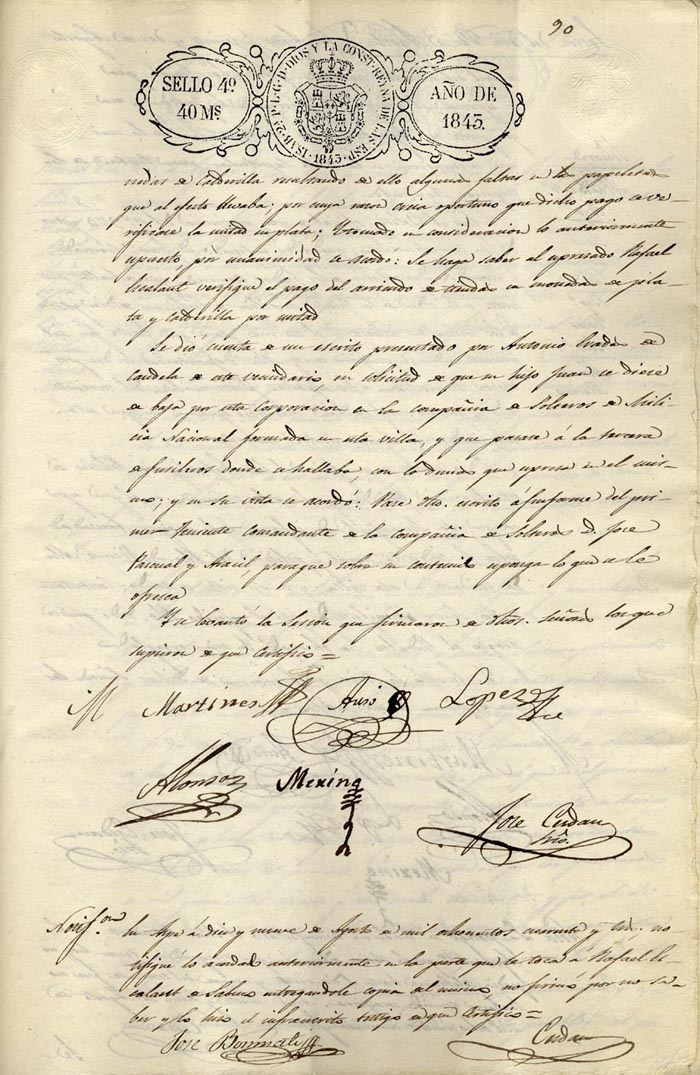 90
SELLO 4º
40 Mˢ
ISAB. 2ª P. L. G. D. DIOS Y LA CONST. REYNA DE LAS ESP. 1843
AÑO DE
1843.
de Calderilla resultando de ello algunas faltas en las papeletas
que al efecto llevaba; por cuya razon creia oportuno que dicho pago se ve-
rificase la mitad en plata; Y tomado en consideracion lo anteriormente
espuesto, por unanimidad se acordó: Se haga saber al espresado Rafael
verifique el pago del arriendo de tiendas en monedas de pla-
ta y calderilla por mitad
Se dió cuenta de un escrito presentado por Antonio Prades de
Candela de este vecindario, en solicitud de que su hijo Juan se diese
de baja por esta Corporacion en la compañia de Solteros de Mili-
cia Nacional formada en esta villa, y que pasase á la tercera
de fusileros donde se hallaba, con lo demas que espresa en el mis-
mo; y en su vista se acordó: Pase dho. escrito á informe del pri-
mer Teniente Comandante de la compañia de Solteros D. Jose
Pascual y Aracil, para que sobre su contenido esponga lo que se le
ofresca
Y se levantó la Sesion que firmaron de dhos. Señores los que
supieron de que certifico =
M Martines Asis Lopez
Alonso Mexina
Jose Cerdan
Srio.
Notifᵒⁿ
En Aspe á diez y nueve de Agosto de mil ochocientos cuarenta y tres. no-
tifiqué lo acordado anteriormente en la parte que le toca á Rafael
de Sabuco entregandole copia del mismo, no firmó por no sa-
ber y lo hizo el infraescrito testigo de que Certifico =
Jose Bonmati Cerdan